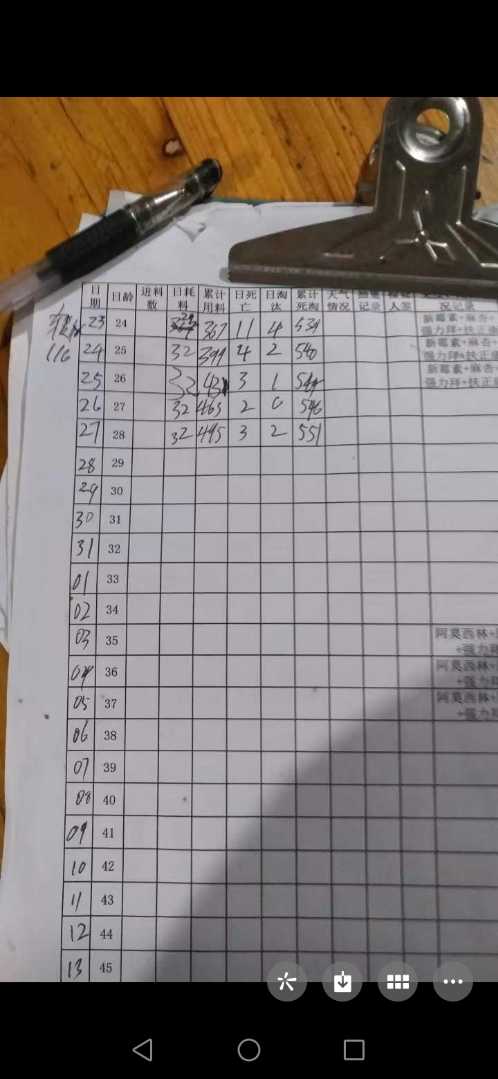 日期 日龄 进料数 日耗料 累计用料 日死亡 日淘汰 累计死淘 天气情况 记录 人签 况记录
23 24 367 11 4 534 新霉素+麻杏+
强力拜+扶正
116 24 25 32 399 4 2 540 新霉素+麻杏+
强力拜+扶正
25 26 32 431 3 1 新霉素+麻杏+
强力拜+扶正
26 27 32 465 2 0 546
27 28 32 495 3 2 551
28 29
29 30
30 31
31 32
01 33
02 34
03 35 阿莫西林+
+强力
04 36 阿莫西林+
+强力
05 37 阿莫西林+
+强力
06 38
07 39
08 40
09 41
10 42
11 43
12 44
13 45